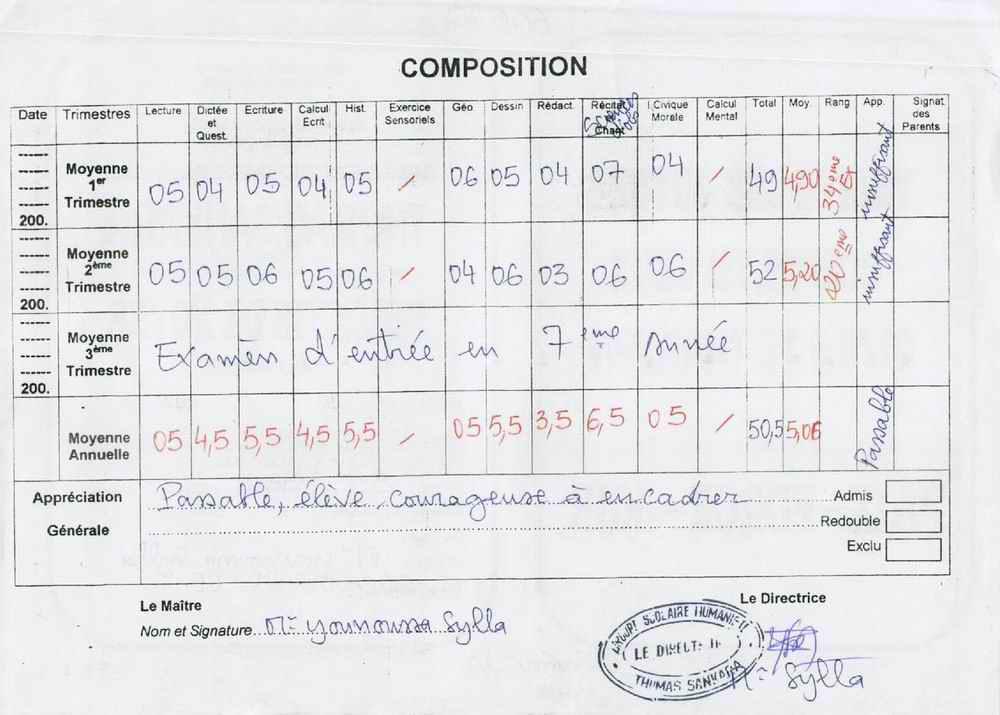 COMPOSITION
Date Trimestres Lecture Dictée et Quest. Ecriture Calcul Ecrit Hist. Exercice Sensoriels Géo Dessin Rédact. Récitat Chant I.Civique Morale Calcul Mental Total Moy. Rang App. Signat des Parents
200. Moyenne 1er Trimestre 05 04 05 04 05 / 06 05 04 07 04 / 49 4,90 34ème insuffisant
200. Moyenne 2ème Trimestre 05 05 06 05 06 / 04 06 03 06 06 / 52 5,20 20ème insuffisant
200. Moyenne 3ème Trimestre Examen d'entrée en 7ème année
Moyenne Annuelle 05 4,5 5,5 4,5 5,5 / 05 5,5 3,5 6,5 05 / 50,5 5,06 Passable
Appréciation Générale Passable, élève courageuse à encadrer
Admis
Redouble
Exclu
Le Maître
Nom et Signature Mr Younoussa Sylla
Le Directrice
GROUPE SCOLAIRE HUMANITE
THOMAS SANKARA
Sylla